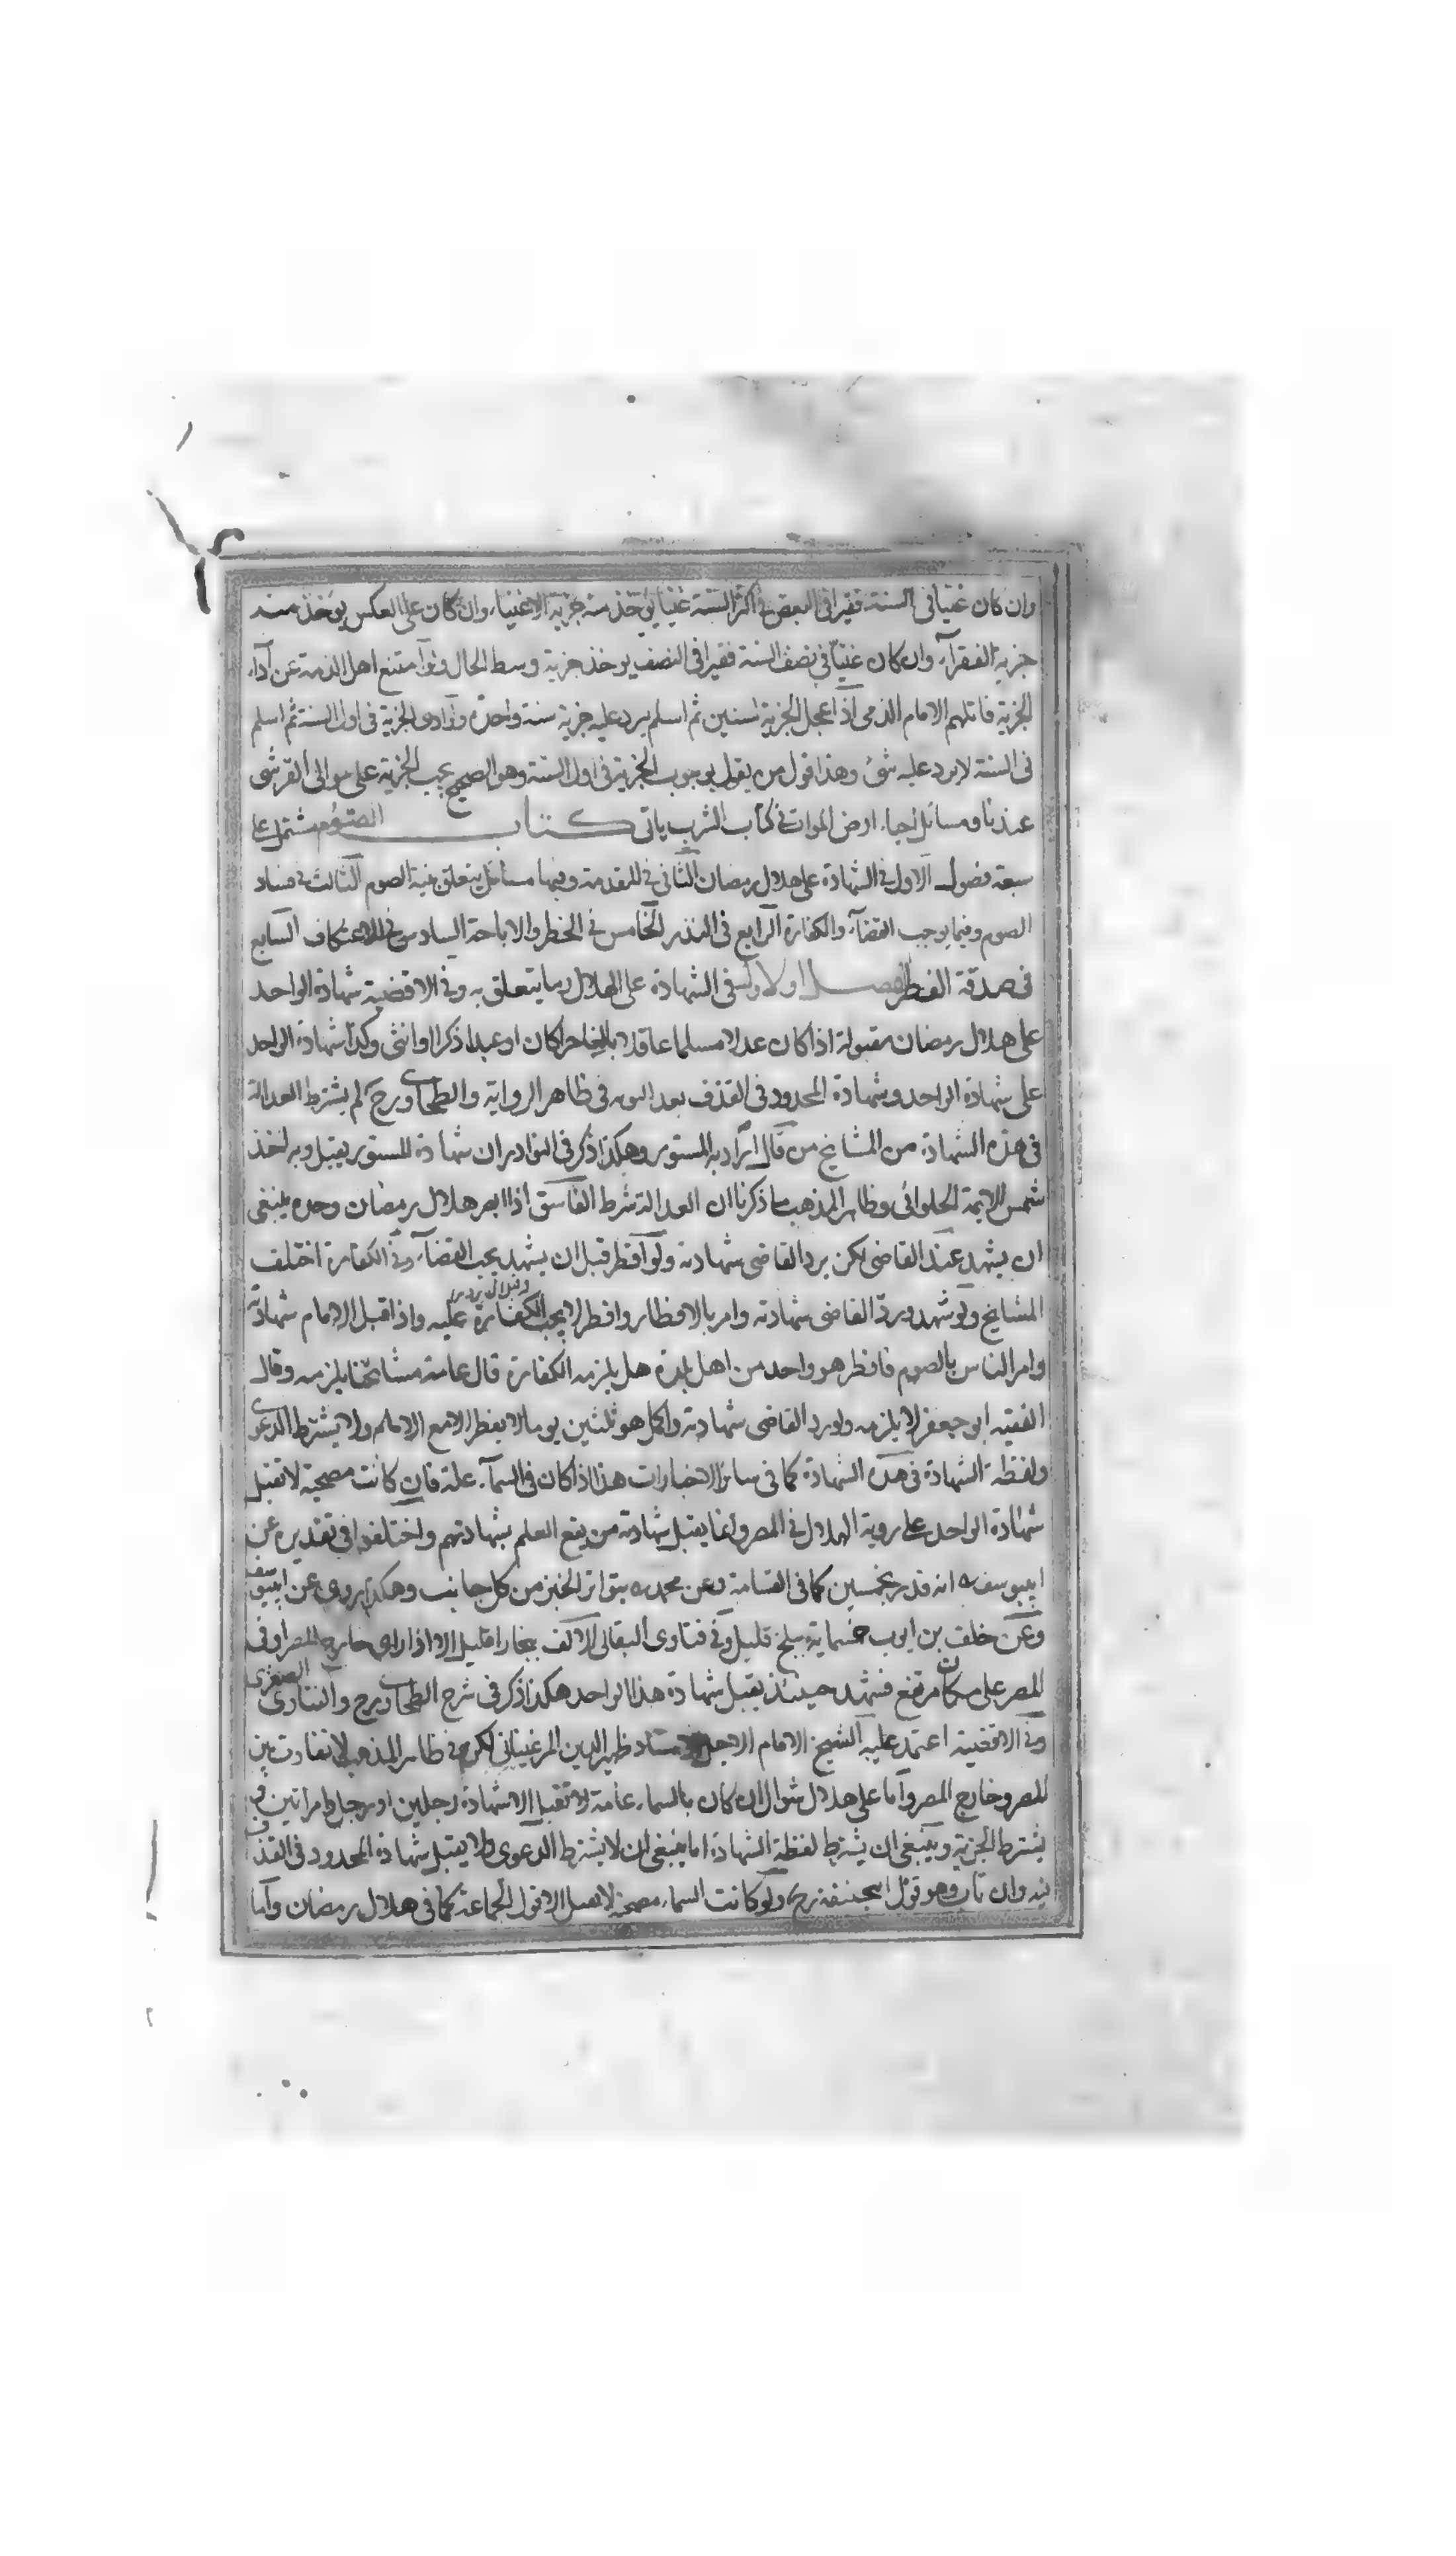 وان كان غنيا فى السنة فقيرا فى البعض فى اكثر السنة غنيا يؤخذ منه جزية الاغنياء وان كان على العكس يؤخذ منه
جزية الفقرآء وان كان غنيا فى نصف السنة فقيرا فى النصف يوخذ جزية وسط الحال ولو امتنع اهل الذمة عن ادآء
الجزية قاتلهم الامام الذمى اذا عجل الجزية لسنين ثم اسلم يرد عليه جزية سنة واحدة ولو ادى الجزية فى اول السنة ثم اسلم
فى السنة لا يرد عليه شئ وهذا قول من يقول بوجوب الجزية فى اول السنة وهو الصحيح يجب الجزية على موالى القرشى
عندنا ومسائل احياء ارض الموات فى كتاب الشرب ياتى كتاب الصوم مشتمل على
سبعة فصول الاول فى الشهادة على هلال رمضان الثانى فى المقدمة وفيها مسائل يتعلق بنية الصوم الثالث فى فساد
الصوم وفيما يوجب القضآء والكفارة الرابع فى النذر الخامس فى الحظر والاباحة السادس فى الاعتكاف السابع
فى صدقة الفطر الفصل الاول فى الشهادة على الهلال وما يتعلق به وفى الاقضية شهادة الواحد
على هلال رمضان مقبولة اذا كان عدلا مسلما عاقلا بالغا حرا كان او عبدا ذكرا او انثى وكذا شهادة الواحد
على شهادة الواحد وشهادة المحدود فى القذف بعد التوبه فى ظاهر الرواية والطحاوى رح لم يشترط العدالة
فى هذه الشهادة من المشايخ من قال اراد به المستور وهكذا ذكر فى النوادر ان شهادة المستور يقبل وبه اخذ
شمس الايمة الحلوائى وظاهر المذهب ما ذكرنا ان العدالة شرط الفاسق اذا ابصر هلال رمضان وحده ينبغى
ان يشهد عند القاضى لكن يرد القاضى شهادته ولو افطر قبل ان يشهد يجب القضآء وفى الكفارة اختلف
المشايخ ولو شهد ورد القاضى شهادته وامر بالافطار وافطر لا يجب الكفارة عليه واذا قبل الامام شهادته
وامر الناس بالصوم فافطر هو واحد من اهل بلده هل يلزمه الكفارة قال عامة مشائخنا يلزمه وقال
الفقيه ابو جعفر لا يلزمه ولو رد القاضى شهادته واكمل هو ثلثين يوما لا يفطر الا مع الامام ولا يشترط الدعوى
ولفظة الشهادة فى هذه الشهادة كما فى سائر الاخبارات هذا اذا كان فى السمآء علة فان كانت مصحية لا تقبل
شهادة الواحد على روية الهلال فى المصر وانما يقبل شهادة من يقع العلم بشهادتهم واختلفوا فى تقديره عن
ابيوسف انه قدر بخمسين كما فى القسامة وعن محمد بتواتر الخبر من كل جانب وهكذا روى عن ابيوسف
وعن خلف بن ايوب خمسماية ببلخ قليل وفى فتاوى البقالى الالف ببخارا قليل الا اذا راى خارج المصر او فى
المصر على مكان مرتفع فشهد حينئذ يقبل شهادة هذا الواحد هكذا ذكر فى شرح الطحاوى رح والفتاوى الصغرى
وفى الاقضية اعتمد عليه الشيخ الامام الاجل الاستاد ظهير الدين المرغينانى لكن فى ظاهر المذهب لا تفاوت بين
المصر وخارج المصر واما على هلال شوال ان كان بالسماء علة لا تقبل الا شهادة رجلين او رجل وامراتين
يشترط الحرية وينبغى ان يشترط لفظة الشهادة اما ينبغى ان لا يشترط الدعوى ولا يقبل شهادة المحدود فى القذف
فيه وان تاب وهو قول ابيحنيفة رح ولو كانت السماء مصحية لا يقبل الا قول الجماعة كما فى هلال رمضان واما